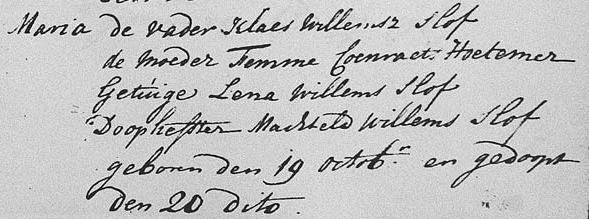 Maria de vader Klaes Willemsz Slof
de moeder Femme Coenraets Hoetemer
Getuige Lena Willems Slof
Doophefster Machteld Willems Slof
geboren den 19 octobr en gedoopt
den 20 dito.